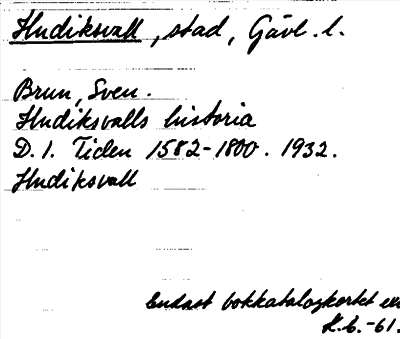 Hudiksvall, stad, Gävl. l.
Brun, Sven.
Hudiksvalls historia
D. 1. Tiden 1582-1800. 1932.
Hudiksvall
Endast bokkatalogkortet
K.b.-61.